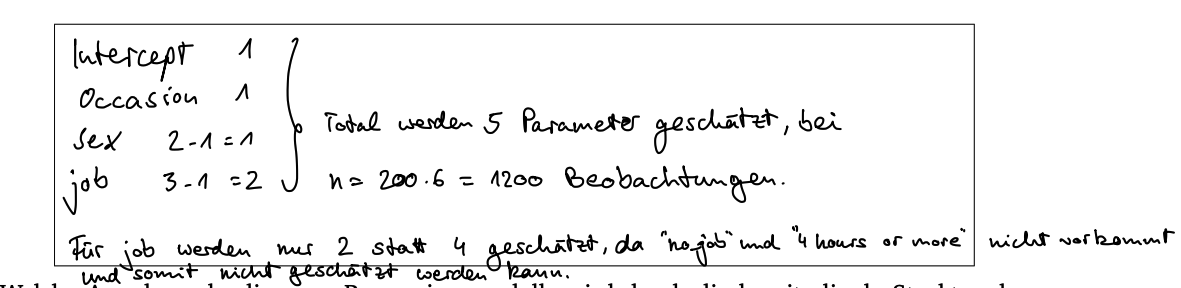 Intercept 1
Occasion 1
sex 2-1 = 1
job 3-1 = 2
Total werden 5 Parameter geschätzt, bei
n = 200·6 = 1200 Beobachtungen.
Für job werden nur 2 statt 4 geschätzt, da "no job" und "4 hours or more" nicht vorkommt
und somit nicht geschätzt werden kann.